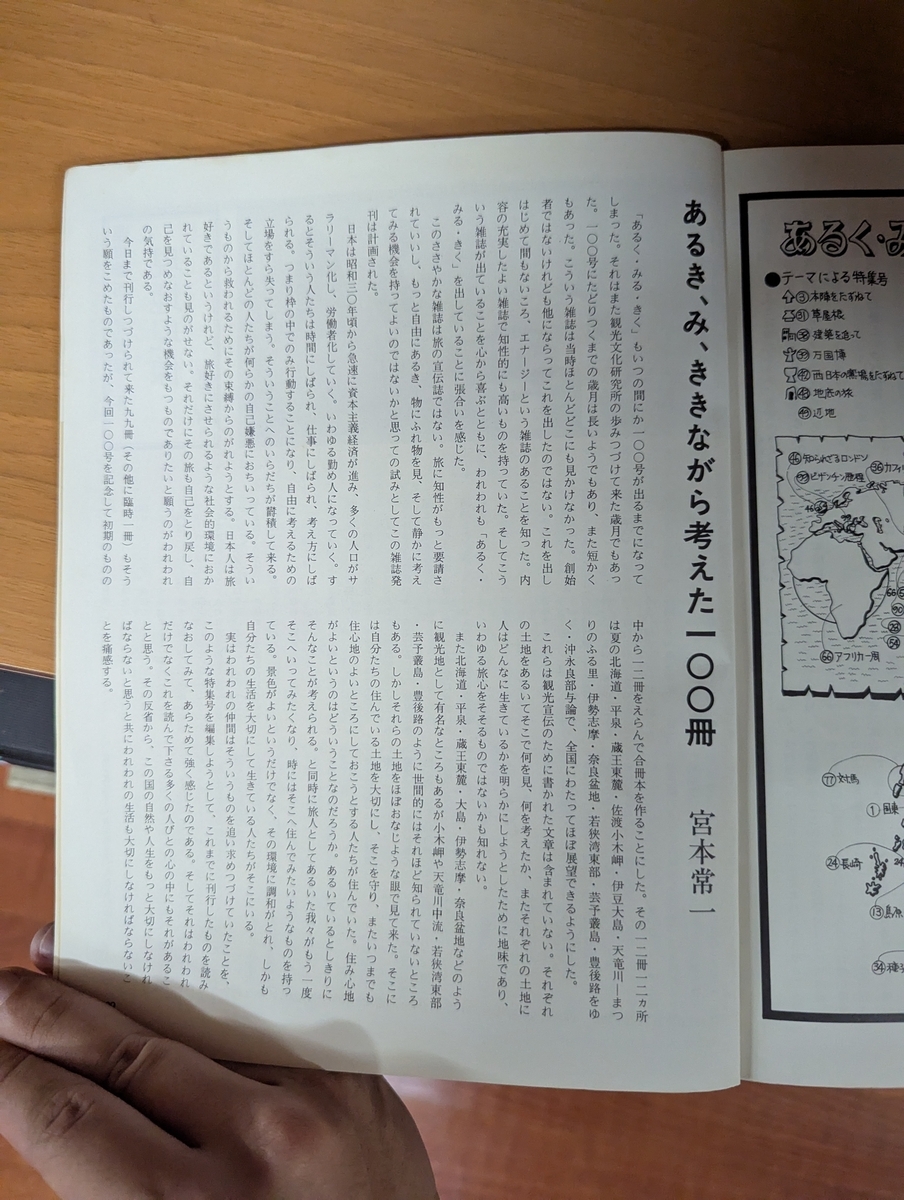 あるき、み、ききながら考えた一〇〇冊
宮本常一
「あるく・みる・きく」もいつの間にか一〇〇号が出るまでになって
しまった。それはまた観光文化研究所の歩みつづけて来た歳月でもあっ
た。一〇〇号にたどりつくまでの歳月は長いようでもあり、また短かく
もあった。こういう雑誌は当時ほとんどどこにも見かけなかった。創始
者ではないけれども他にならってこれを出したのではない。これを出し
はじめて間もないころ、エナージーという雑誌のあることを知った。内
容の充実したよい雑誌で知性的にも高いものを持っていた。そしてこう
いう雑誌が出ていることを心から喜ぶとともに、われわれも「あるく・
みる・きく」を出していることに張合いを感じた。
このささやかな雑誌は旅の宣伝誌ではない。旅に知性がもっと要請さ
れていいし、もっと自由にあるき、物にふれ物を見、そして静かに考え
てみる機会を持ってよいのではないかと思っての試みとしてこの雑誌発
刊は計画された。
日本は昭和三〇年頃から急速に資本主義経済が進み、多くの人口がサ
ラリーマン化し、労働者化していく。いわゆる勤め人になっていく。す
るとそういう人たちは時間にしばられ、仕事にしばられ、考え方にしば
られる。つまり枠の中でのみ行動することになり、自由に考えるための
立場をすら失ってしまう。そういうことへのいらだちが欝積して来る。
そしてほとんどの人たちが何らかの自己嫌悪におちいっている。そうい
うものから救われるためにその束縛からのがれようとする。日本人は旅
好きであるというけれど、旅好きにさせられるような社会的環境におか
れていることも見のがせない。それだけにその旅も自己をとり戻し、自
己を見つめなおすような機会をもつものでありたいと願うのがわれわれ
の気持である。
今日まで刊行しつづけられて来た九九冊（その他に臨時一冊）もそう
いう願をこめたものであったが、今回一〇〇号を記念して初期のものの
中から一二冊をえらんで合冊本を作ることにした。その一二冊一二ヵ所
は夏の北海道・平泉・蔵王東麓・佐渡小木岬・伊豆大島・天竜川―まつ
りのふる里・伊勢志摩・奈良盆地・若狭湾東部・芸予叢島・豊後路をゆ
く・沖永良部与論で、全国にわたってほぼ展望できるようにした。
これらは観光宣伝のために書かれた文章は含まれていない。それぞれ
の土地をあるいてそこで何を見、何を考えたか、またそれぞれの土地に
人はどんなに生きているかを明らかにしようとしたために地味であり、
いわゆる旅心をそそるものではないかも知れない。
また北海道・平泉・蔵王東麓・大島・伊勢志摩・奈良盆地などのよう
に観光地として有名なところもあるが小木岬や天竜川中流・若狭湾東部
・芸予叢島・豊後路のように世間的にはそれほど知られていないところ
もある。しかしそれらの土地をほぼおなじような眼で見て来た。そこに
は自分たちの住んでいる土地を大切にし、そこを守り、またいつまでも
住心地のよいところにしておこうとする人たちが住んでいた。住み心地
がよいというのはどういうことなのだろうか。あるいているとしきりに
そんなことが考えられる。と同時に旅人としてあるいた我々がもう一度
そこへいってみたくなり、時にはそこへ住んでみたいようなものを持っ
ている。景色がよいというだけでなく、その環境に調和がとれ、しかも
自分たちの生活を大切にして生きている人たちがそこにいる。
実はわれわれの仲間はそういうものを追い求めつづけていたことを、
このような特集号を編集しようとして、これまでに刊行したものを読み
なおしてみて、あらためて強く感じたのである。そしてそれはわれわれ
だけでなくこれを読んで下さる多くの人びとの心の中にもそれがあるこ
とと思う。その反省から、この国の自然や人生をもっと大切にしなけれ
ばならないと思うと共にわれわれの生活も大切にしなければならないこ
とを痛感する。
あるく・み
●テーマによる特集号
③本陣をたずねて
㉛草屋根
建築を追って
㊴万国博
㊷西日本の窯場をたずねて
㊽地底の旅
㊾辺地
㊻知られざるロンドン
ビザンチン歴程
66 アフリカ一周
77 対馬
①国東
㉔長崎
⑬島原
㉞種